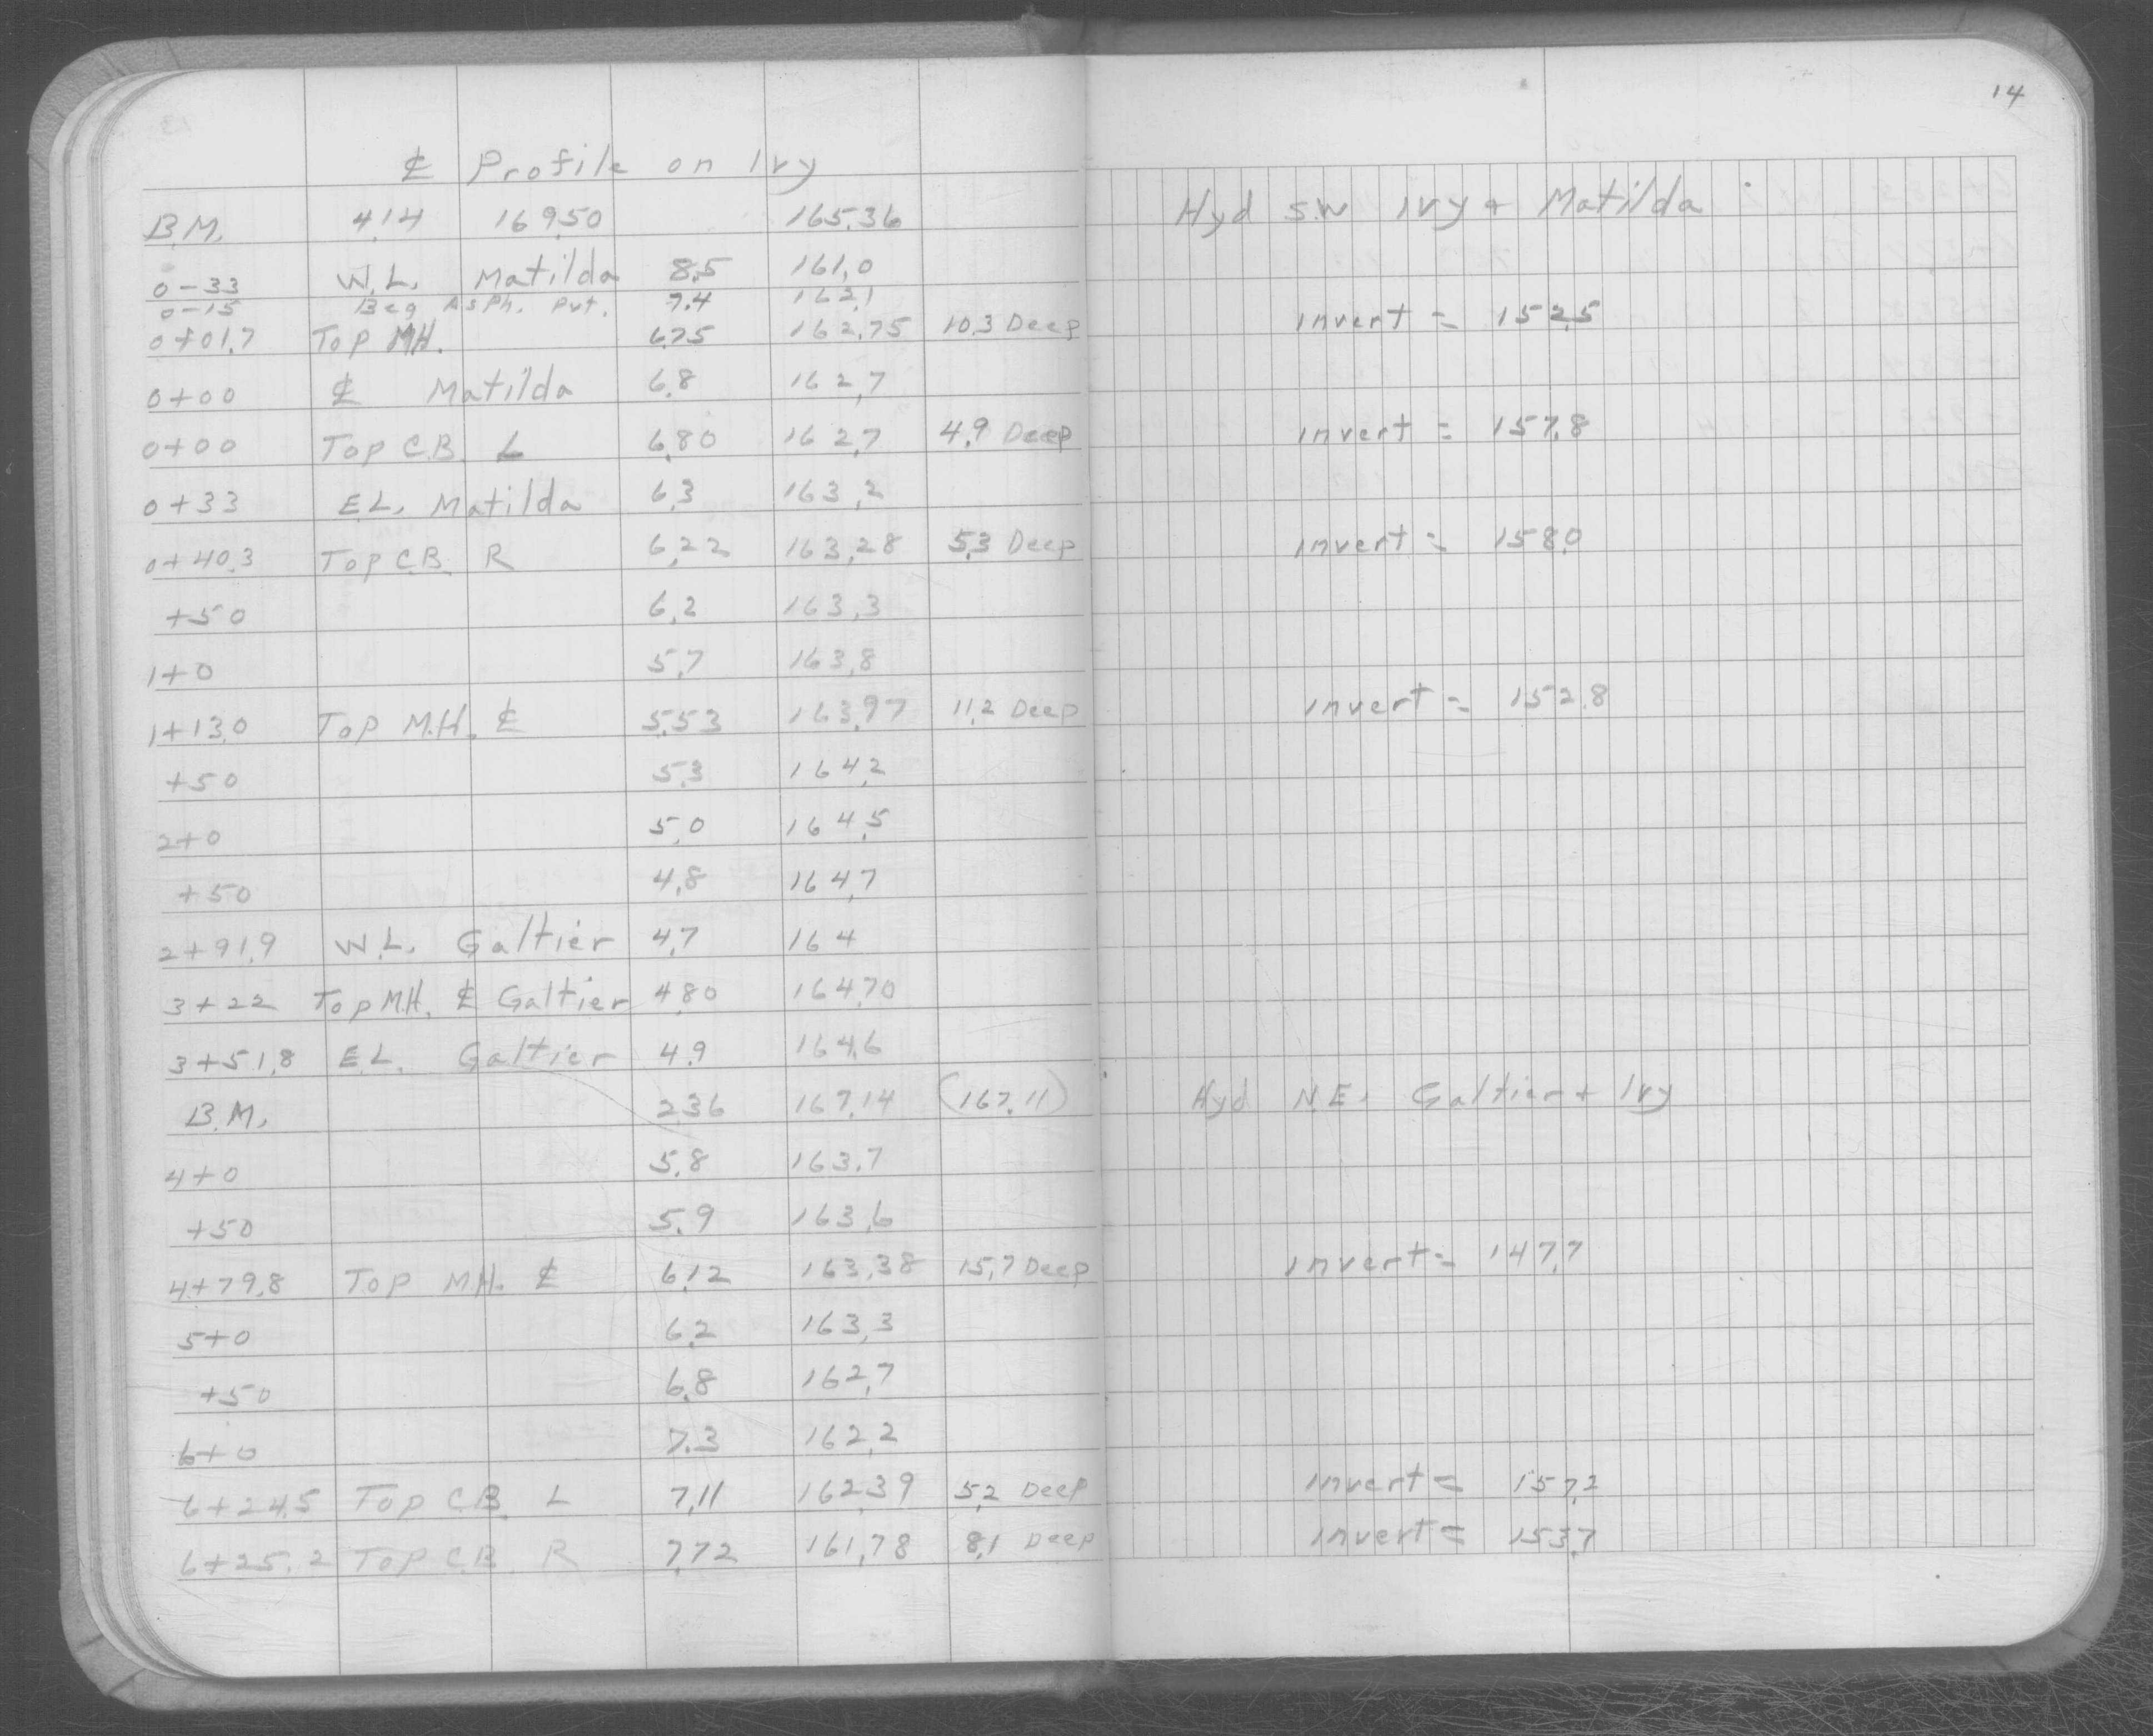 14
℄ Profile on Ivy
B.M. 4.14 169.50 165.36 Hyd S.W. Ivy + Matilda
0-33 W.L. Matilda 8.5 161.0
0-15 Beg Asph. Pvt. 7.4 162.1
0+01.7 Top MH. 6.75 162.75 10.3 Deep Invert = 152.5
0+00 ℄ Matilda 6.8 162.7
0+00 Top C.B. L 6.80 162.7 4.9 Deep Invert = 157.8
0+33 E.L. Matilda 6.3 163.2
0+40.3 Top C.B. R 6.22 163.28 5.3 Deep Invert = 158.0
+50 6.2 163.3
1+0 5.7 163.8
1+13.0 Top M.H. ℄ 5.53 163.97 11.2 Deep Invert = 152.8
+50 5.3 164.2
2+0 5.0 164.5
+50 4.8 164.7
2+91.9 W.L. Galtier 4.7 164
3+22 Top M.H. ℄ Galtier 4.80 164.70
3+51.8 E.L. Galtier 4.9 164.6
B.M. 2.36 167.14 (167.11) Hyd N.E. Galtier + Ivy
4+0 5.8 163.7
+50 5.9 163.6
4+79.8 Top M.H. ℄ 6.12 163.38 15.7 Deep Invert = 147.7
5+0 6.2 163.3
+50 6.8 162.7
6+0 7.3 162.2
6+24.5 Top C.B. L 7.11 162.39 5.2 Deep Invert = 157.2
6+25.2 Top C.B. R 7.72 161.78 8.1 Deep Invert = 153.7